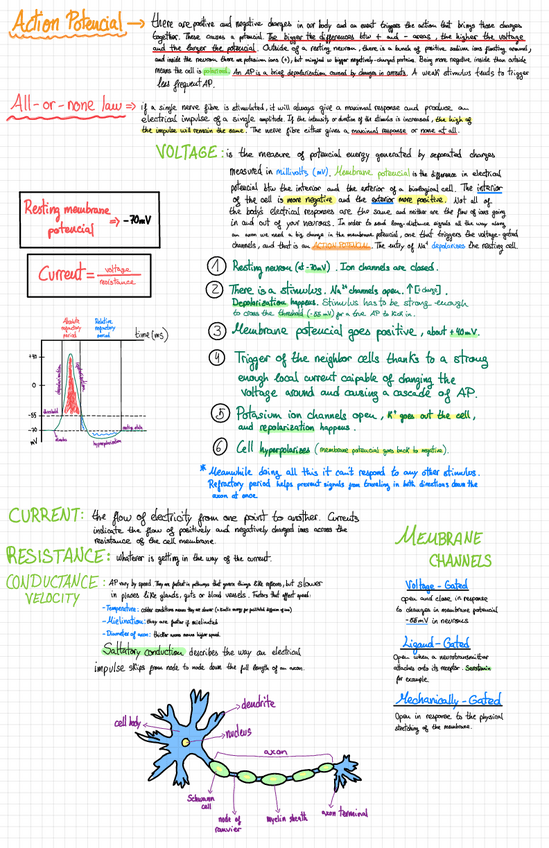 Action Potencial → there are positive and negative charges in our body and an event triggers the action that brings those charges
together. These causes a potencial. The bigger the differences btw + and - areas, the higher the voltage
and the larger the potencial. Outside of a resting neuron, there is a bunch of positive sodium ions floating around,
and inside the neuron, there are potassium ions (+), but mingled w bigger negatively-charged proteins. Being more negative inside than outside
means the cell is polarized. An AP is a brief depolarization caused by changes in currents. A weak stimulus tends to trigger
less frequent AP.
All-or-none law ⇒ if a single nerve fibre is stimulated, it will always give a maximal response and produce an
electrical impulse of a single amplitude. If the intensity or duration of the stimulus is increased, the high of
the impulse will remain the same. The nerve fibre either gives a maximal response or none at all.
VOLTAGE: is the measure of potencial energy generated by separated charges
measured in millivolts (mV). Membrane potencial is the difference in electrical
potencial btw the interior and the exterior of a biological cell. The interior
of the cell is more negative and the exterior more positive. Not all of
the body's electrical responses are the same and neither are the flow of ions going
in and out of your neurons. In order to send long-distance signals all the way along
an axon we need a big change in the membrane potencial, one that triggers the voltage-gated
channels, and that is an ACTION POTENCIAL. The entry of Na⁺ depolarises the resting cell.
Resting membrane
potencial ⇒ -70mV
Current = voltage
resistance
① Resting neuron (at -70mV). Ion channels are closed.
② There is a stimulus. Na⁺ channels open.
Depolarization happens. Stimulus has to be strong enough
to cross the threshold (-55 mV) for a true AP to kick in.
③ Membrane potencial goes positive, about +40mV.
④ Trigger of the neighbor cells thanks to a strong
enough local current caipable of changing the
voltage around and causing a cascade of AP.
⑤ Potasium ion channels open, K⁺ goes out the cell,
and repolarization happens.
⑥ Cell hyperpolarises (membrane potencial goes back to negative).
* Meanwhile doing all this it can't respond to any other stimulus.
Refractory period helps prevent signals from traveling in both directions down the
axon at once.
Absolute refractory period
Relative refractory period
time (ms)
+40
0
depolarization
repolarization
threshold
-55
-70
resting state
mV
stimulus
hyperpolarization
CURRENT: the flow of electricity from one point to another. Currents
indicate the flow of positively and negatively charged ions across the
resistance of the cell membrane.
RESISTANCE: whatever is getting in the way of the current.
CONDUCTANCE VELOCITY: AP vary by speed. They are fastest in pathways that govern things like reflexes, but slower
in places like glands, guts or blood vessels. Factors that affect speed:
- Temperature: colder conditions means they are slower
- Mielination: they are faster if mielinated
- Diameter of axon: thicker axon means higher speed.
Saltatory conduction describes the way an electrical
impulse skips from node to node down the full length of an axon.
MEMBRANE
CHANNELS
Voltage-Gated
open and close in response
to changes in membrane potencial
-55mV in neurons
Ligand-Gated
Open when a neurotransmitter
attaches onto its receptor. Serotonin
for example.
Mechanically-Gated
Open in response to the physical
stretching of the membrane.
dendrite
cell body
nucleus
axon
Schwann
cell
node of
ranvier
myelin sheath
axon terminal